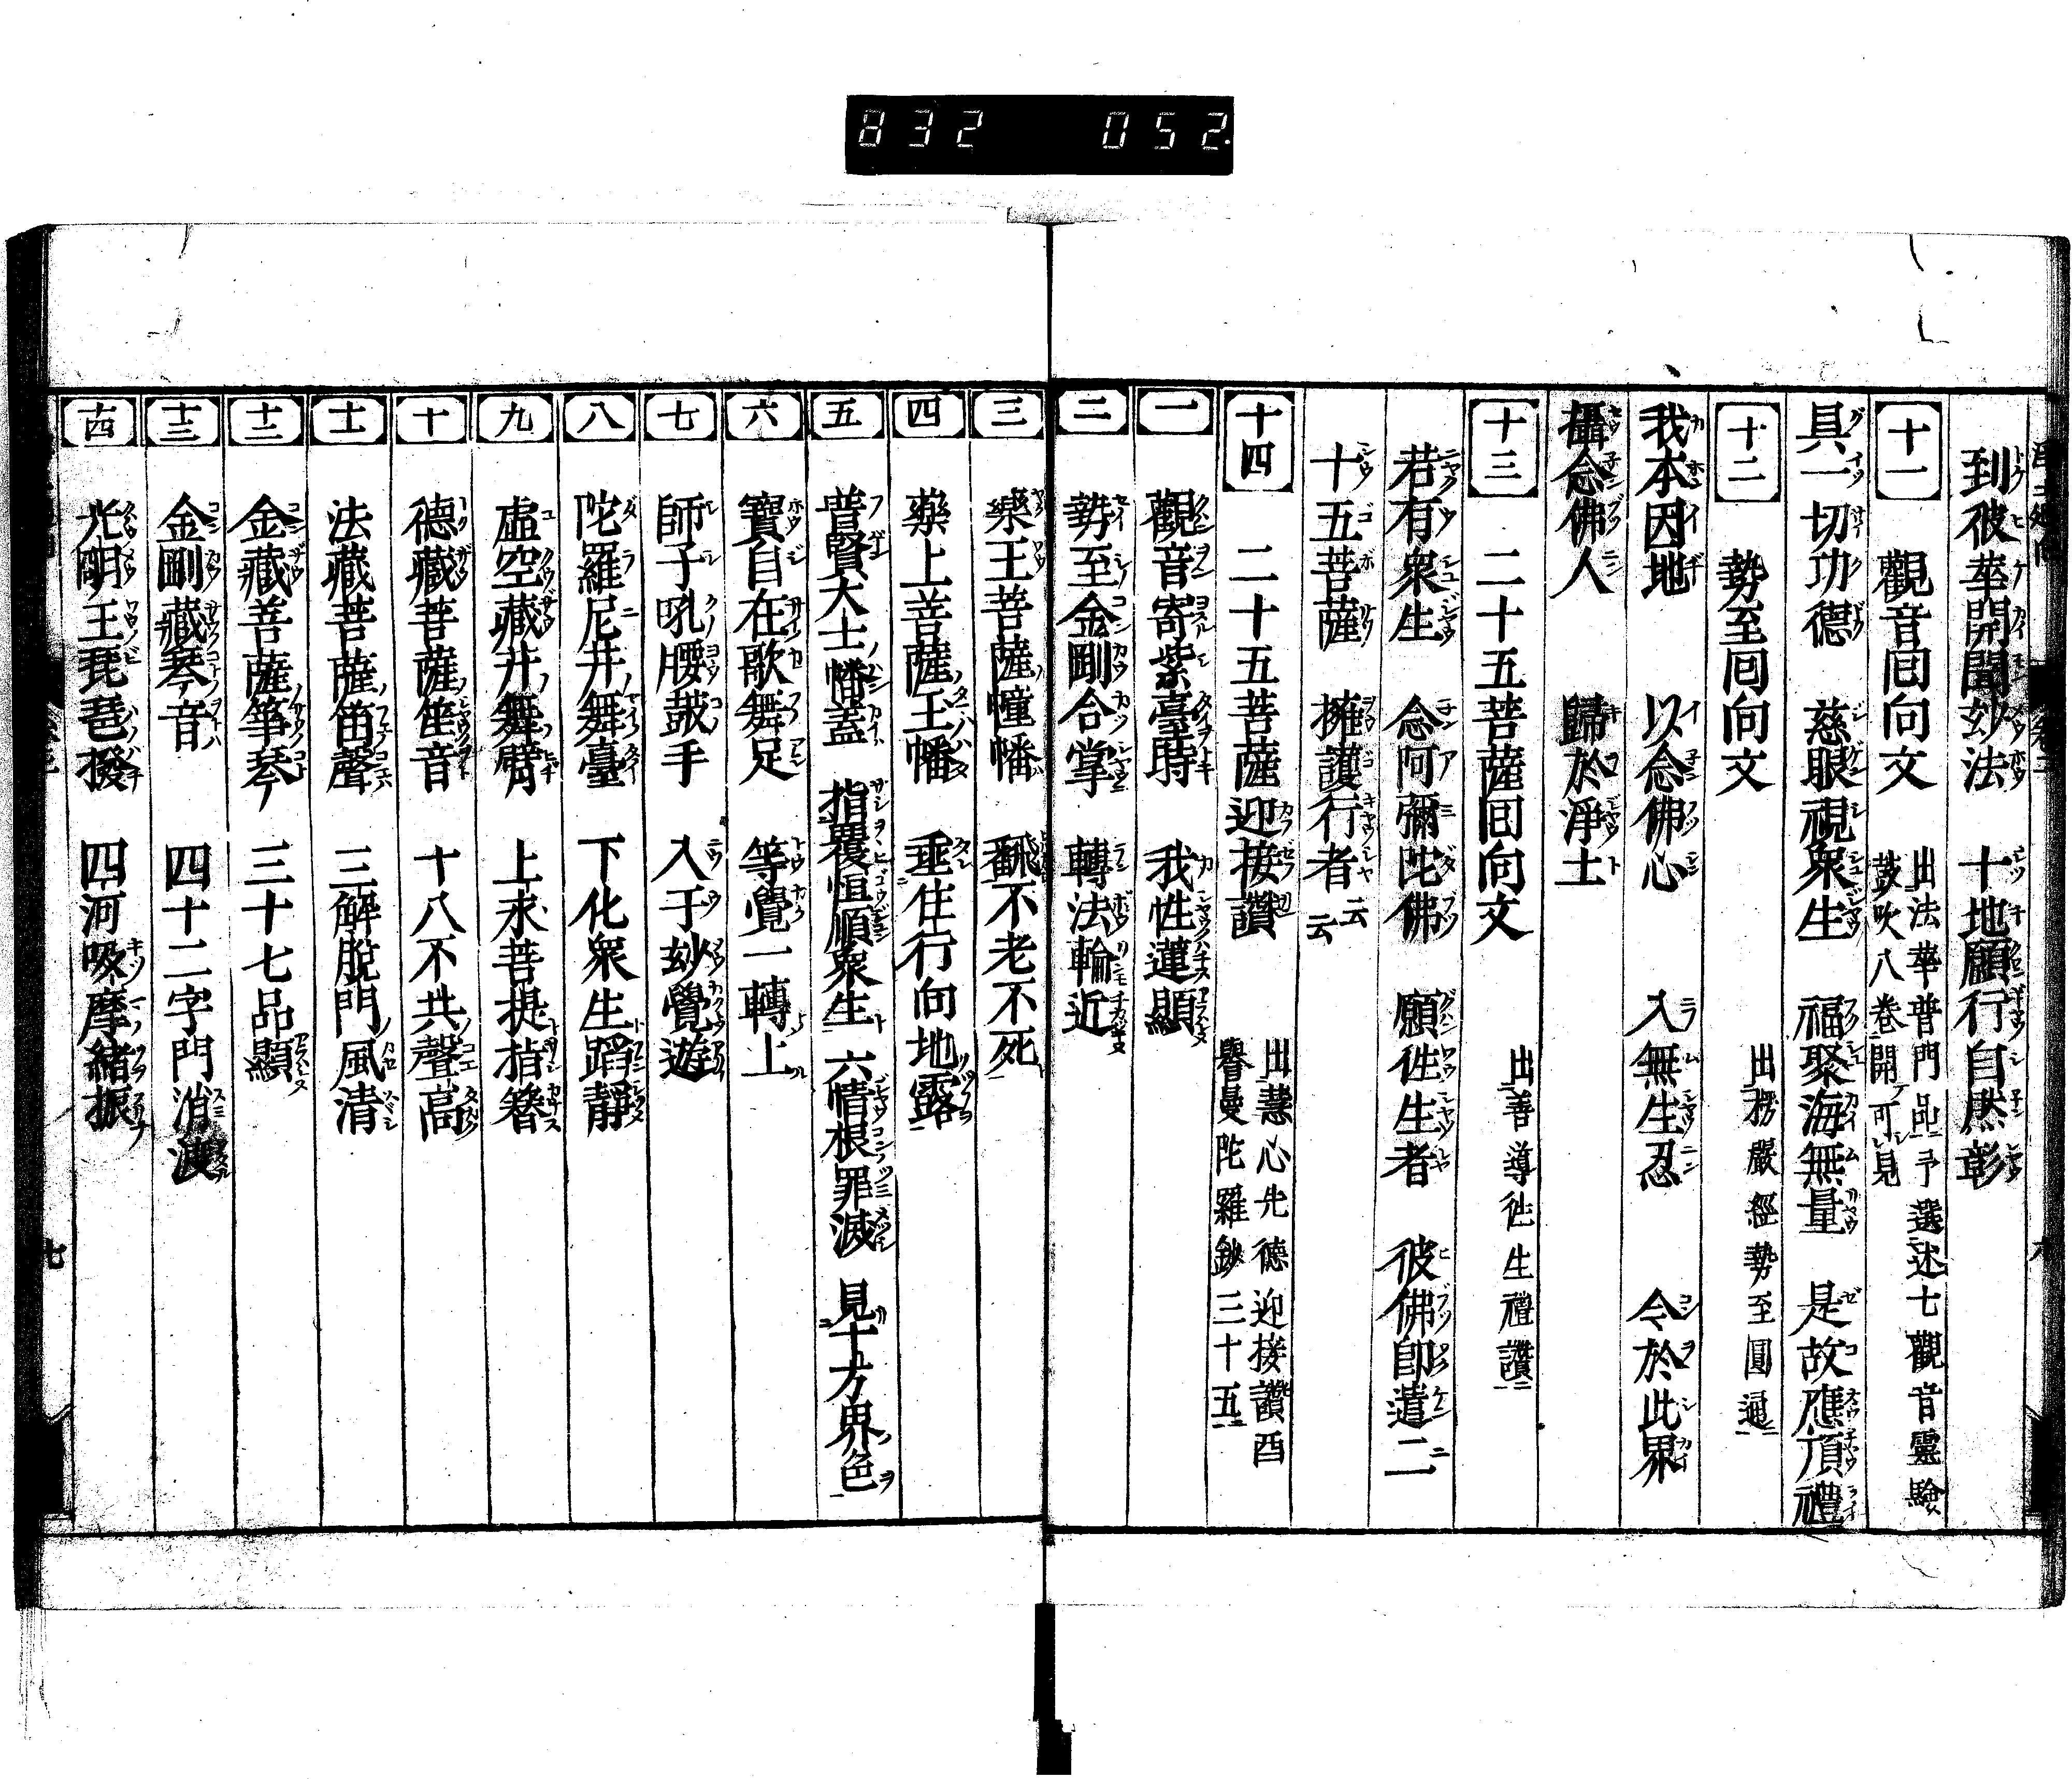 832 052.
到彼華開聞玅法 十地願行自然彰
十一 觀音回向文 出法華普門品予選述七觀音靈驗
鼓吹八卷開可見
具一切功德 慈眼視衆生 福聚海無量 是故應頂禮
十二 勢至回向文 出楞嚴經勢至圓通
我本因地 以念佛心 入無生忍 令於此界
攝念佛人 歸於淨土
十三 二十五菩薩回向文 出善導徃生禮讃
若有衆生 念阿彌陀佛 願徃生者 彼佛卽遣二
十五菩薩 擁護行者云云
十四 二十五菩薩迎接讃 出慧心先德迎接讃酉
譽曼陀羅鈔三十五
一 觀音寄紫臺時 我性蓮顯
二 勢至金剛合掌 轉法輪近
三 藥王菩薩幢幡 飜不老不死
四 藥上菩薩玉幡 垂住行向地露
五 普賢大士幡蓋 指覆恒順衆生 六情根罪滅 見十方界色
六 寶自在歌舞足 等覺一轉上
七 師子吼腰鼓手 入于玅覺遊
八 陀羅尼井舞臺 下化衆生蹈靜
九 虛空藏井舞臂 上求菩提指簪
十 德藏菩薩笙音 十八不共聲高
十一 法藏菩薩笛聲 三解脫門風清
十二 金藏菩薩筝琴 三十七品顯
十三 金剛藏琴音 四十二字門消渡
十四 光明王琵琶撥 四河吸摩緖振
七